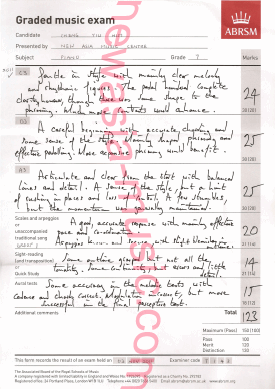 Graded music exam
ABRSM
Candidate CHANG YIU HEI
Presented by NEW ASIA MUSIC CENTRE
Subject PIANO Grade 7 Marks
Gentle in style with mainly clear melody
and rhythmic figures. The pedal hindered complete
clarity, however, though there was some shape to the
phrasing. More contrasts would enhance.
24
30 (20)
A careful beginning with accurate chording and
some sense of the style. Mainly shaped phrasing and
effective pedalling. More expansive phrasing would benefit.
25
30 (20)
Articulate and clear from the start with balanced
lines and detail. A sense of the style but a hint
of rushing in places and loss of control. A few struggles,
but the momentum was mainly maintained.
25
30 (20)
Scales and arpeggios
or
unaccompanied
traditional song
A very accurate response with mainly effective
pace and co-ordination.
Arpeggios secure with slight blemishes.
20
21 (14)
Sight-reading
(and transposition)
or
Quick Study
Some outline given but not all the
tonality. Some continuity, but errors and little
detail.
14
21 (14)
Aural tests
Some accuracy in the melody tests with
cadence and chords correct. Modulation incorrect, but more
successful in the final perceptive tests.
15
18 (12)
Additional comments
Total 123
Maximum (Pass) 150 (100)
Pass 100
Merit 120
Distinction 130
This form records the result of an exam held on
Examiner code
The Associated Board of the Royal Schools of Music
newasiamusic.sh